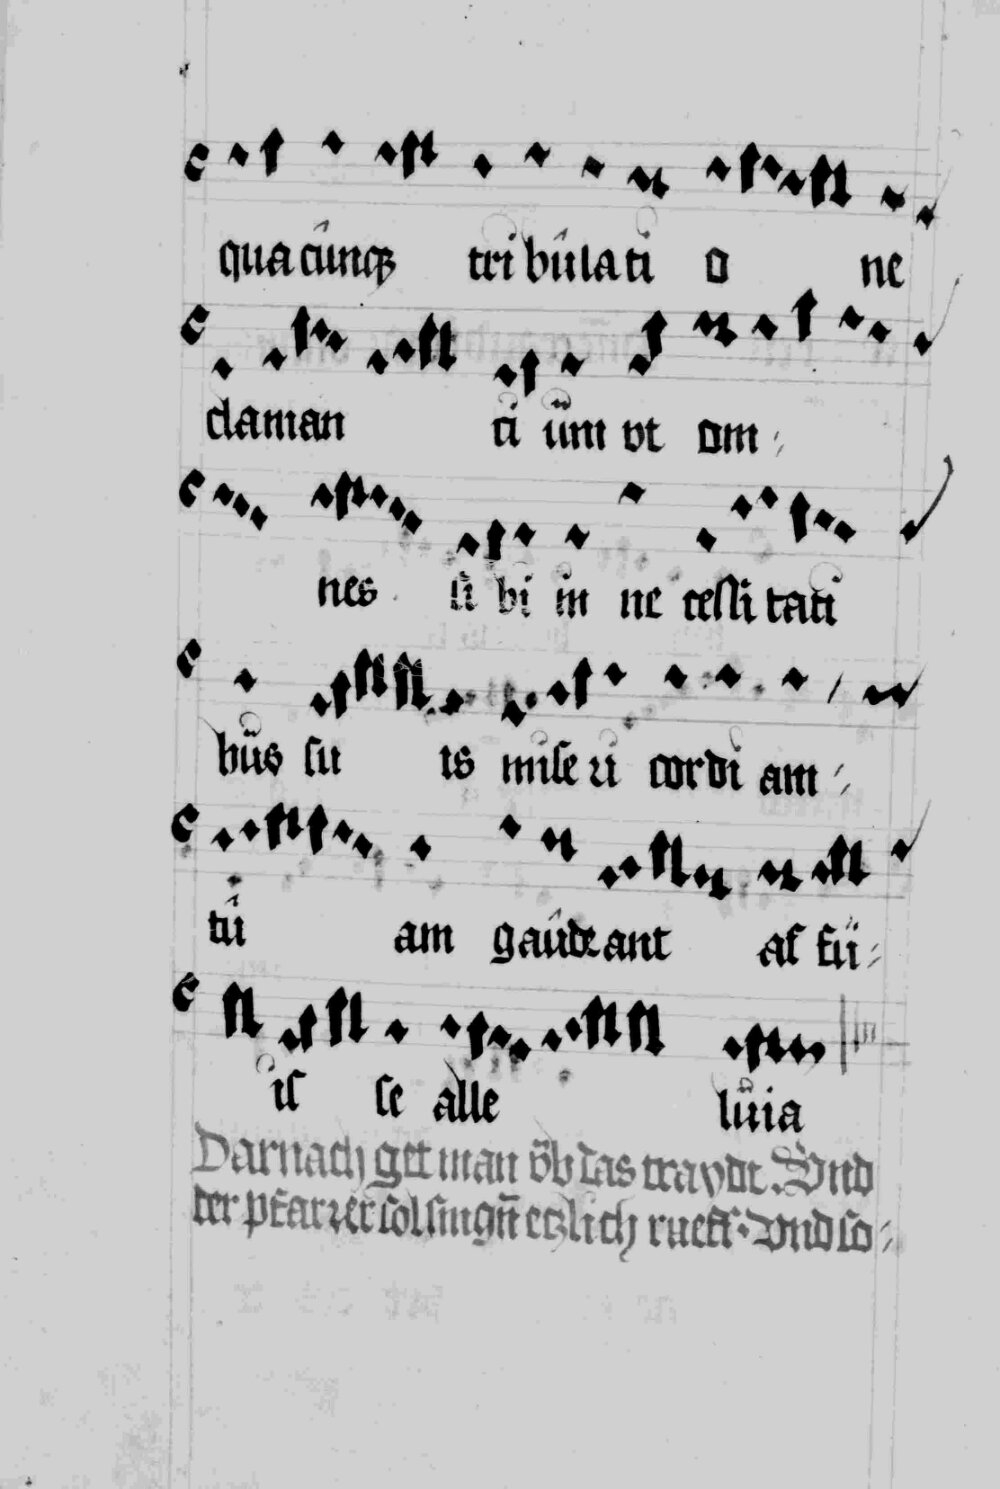 qua cunqꝫ tri bula ti o ne
claman ti um vt om⸗
nes ti bi in ne cessi tati
bus su is mise ri cordi am⸗
tu am gaudeant as fu⸗
is se alle luia
Darnach get man vb das traydt. Und
der pfarrer sol singn̄ etzlich rueff. Und so⸗